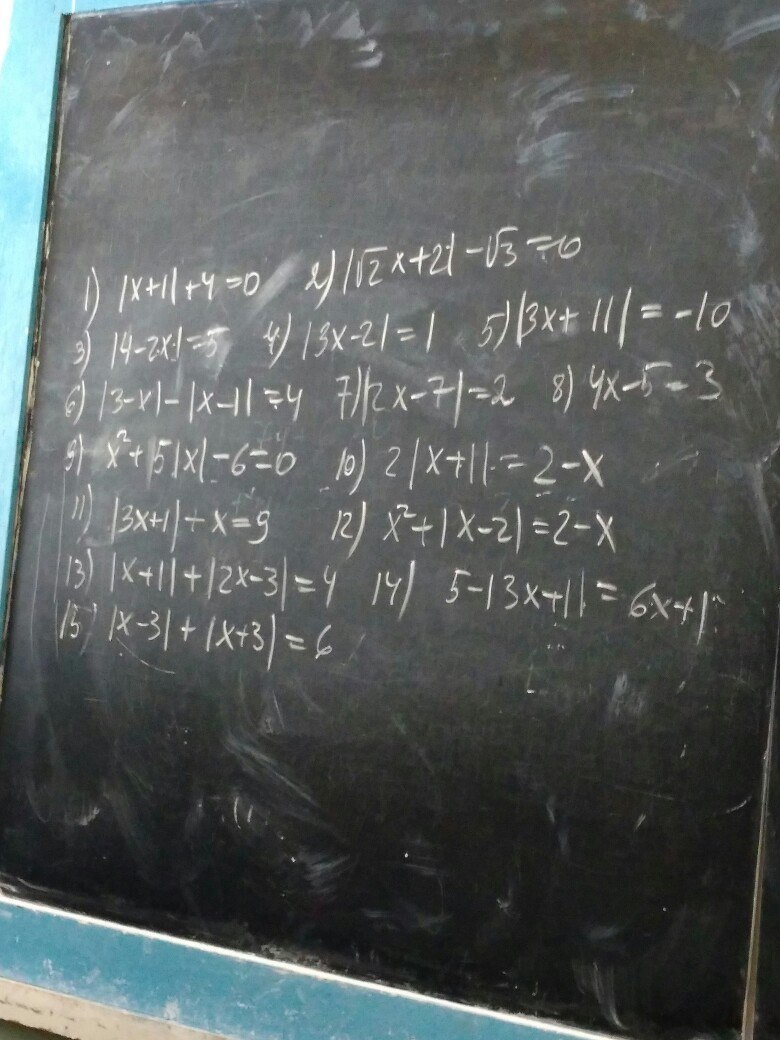 1) |x+1|+4=0 2) |√2 x+2|-√3=0
3) |4-2x|=5 4) |3x-2|=1 5) |3x+11|=-10
6) |3-x|-|x-1|=4 7) |2x-7|=2 8) 4x-5=3
9) x²+5|x|-6=0 10) 2|x+1|=2-x
11) |3x+1|+x=9 12) x²+|x-2|=2-x
13) |x+1|+|2x-3|=4 14) 5-|3x+1|=6x+1
15) |x-3|+|x+3|=6